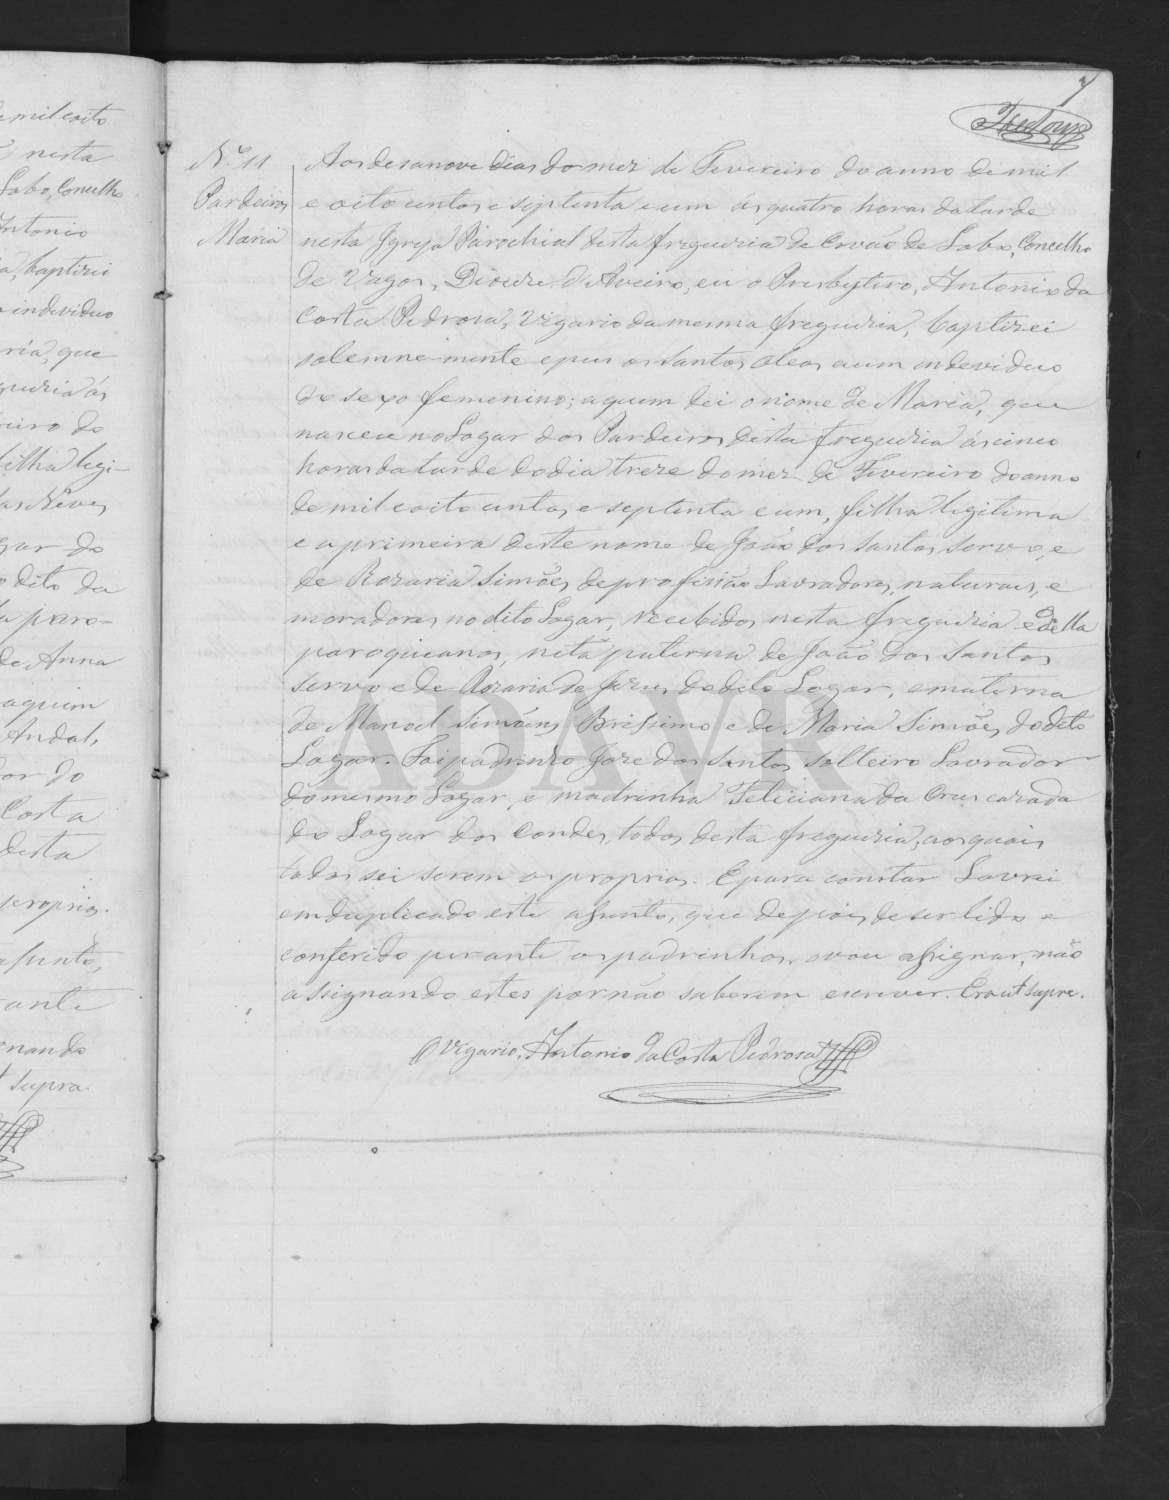 e mil coito
nesta
Lobo, Concelho
Antonio
a, baptizei
o individuo
ria, que
guezia ás
eiro do
filha legi-
das Neves
gar do
o dito da
ta paro-
de Anna
aquim
Andal,
dor do
Costa
desta
proprios.
assento,
rante
gnando
supra.
7
Nº 11
Pardeiros
Maria
Aos desanove dias do mez de Fevereiro do anno de mil
e oito centos e septenta e um ás quatro horas da tarde
nesta Igreja Parochial desta freguezia de Covão de Lobo, Concelho
de Vagos, Diocese d'Aveiro, eu o Presbytero, Antonio da
Costa Pedrosa, Vigario da mesma freguezia, baptizei
solemne-mente e puz os santos oleos a um endeviduo
do sexo femenino; a quem dei o nome de Maria, que
nasceu no Logar dos Pardeiros desta freguezia ás cinco
horas da tarde do dia treze do mez de Fevereiro do anno
de mil coito centos e septenta e um, filha legitima
e a primeira deste nome de João dos Santos servo, e
de Rozaria Simões, de profissão Lavradores, naturaes, e
moradores no dito Logar, recebidos nesta freguezia e della
paroquianos, neta paterna de João dos Santos
servo e de Rozaria de Jezus do dito Logar, e materna
de Manoel Simões Brissimo e de Maria Simões do dito
Logar. Foi padrinho Joze dos Santos solteiro Lavrador
do mesmo Logar, e madrinha Feliciana da Cruz cazada
do Logar dos Condes, todos desta freguezia, aos quais
todos sei serem os proprios. E para constar Lavrei
em duplicado este assento, que depois de ser lido e
conferido perante os padrinhos, o vou assignar, não
assignando estes por não saberem escrever. Era ut supra.
O Vigario, Antonio da Costa Pedrosa
ADAVR